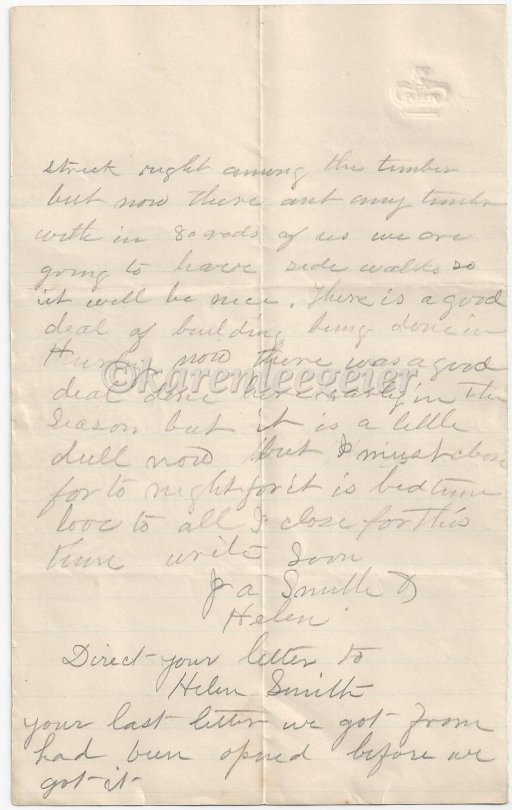 street right among the timber
but now there ant any timber
with in 80 rods of us we are
going to have side walks so
it will be nice. There is a good
deal of building being done in
now there was a good
©karenleegeier
deal done here early in the
season but it is a little
dull now but I must close
for to night for it is bedtime
love to all I close for this
time write soon
J a Smith &
Helen
Direct your letter to
Helen Smith
your last letter we got from
had been opned before we
got it